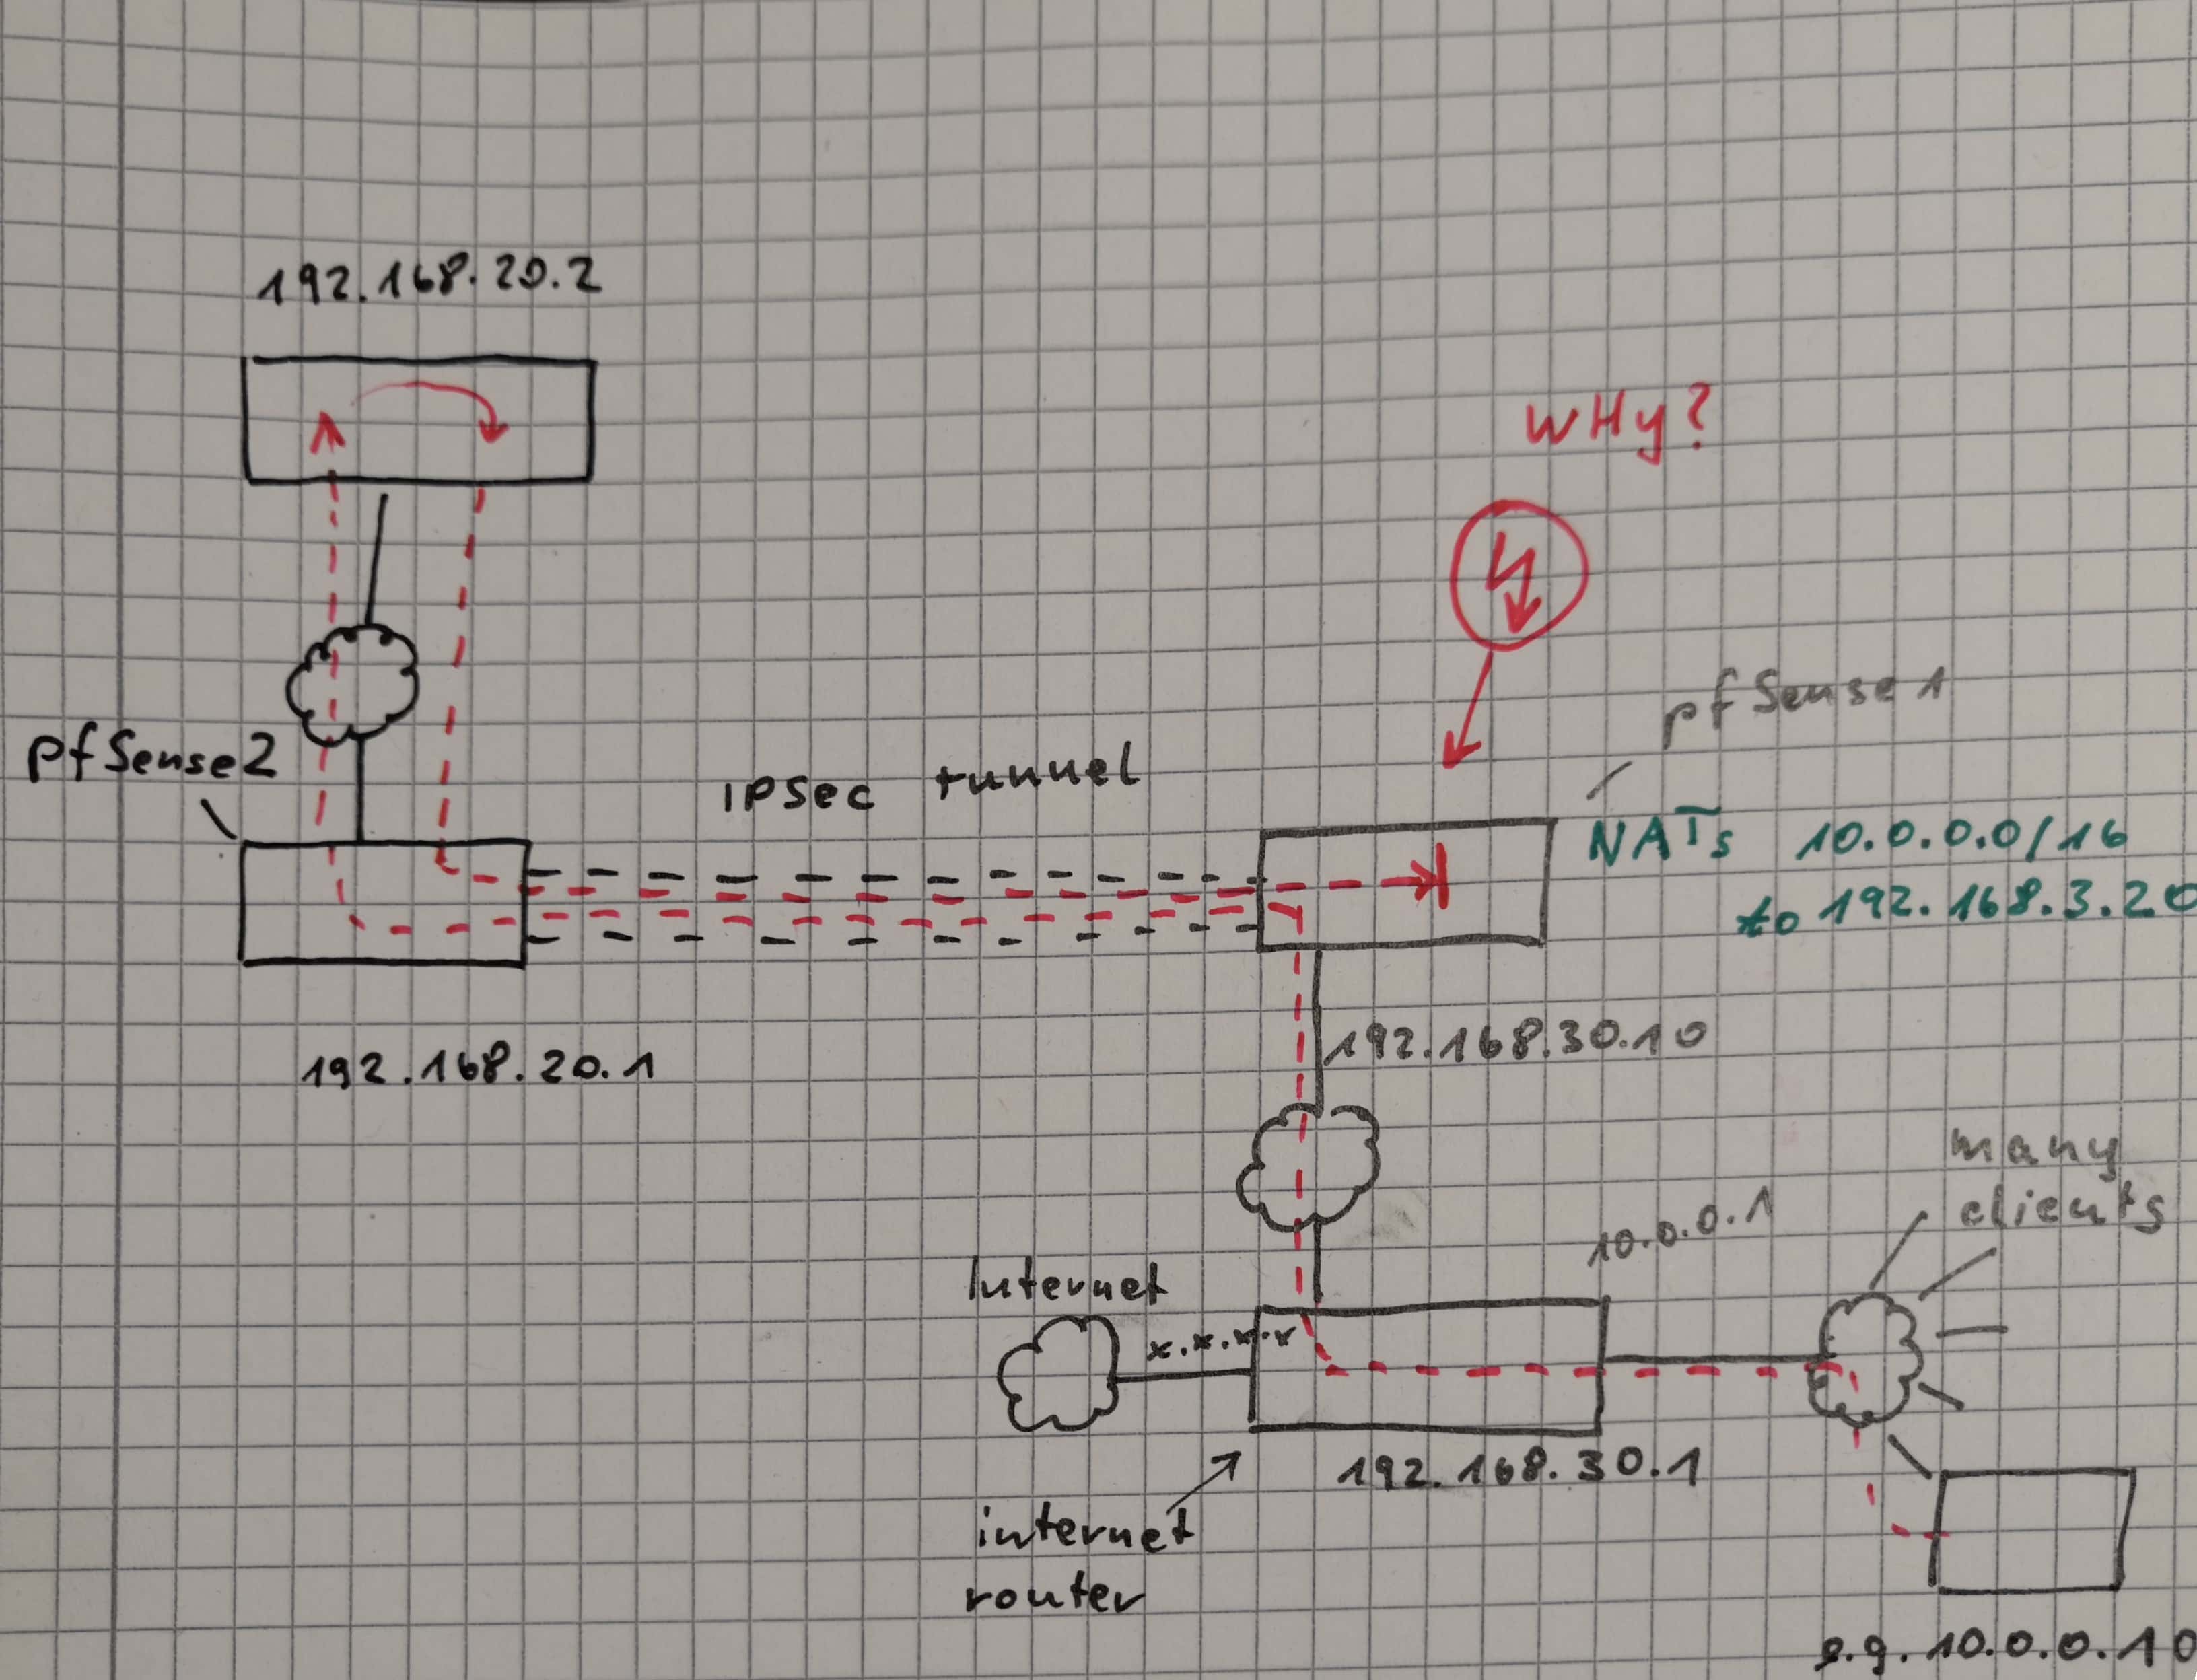 192.168.20.2
WHY?
pfSense1
pfSense2
IPSec tunnel
NATs 10.0.0.0/16
to 192.168.3.20
192.168.20.1
192.168.30.10
many
clients
10.0.0.1
Internet
x.x.x.x
192.168.30.1
internet
router
e.g. 10.0.0.10